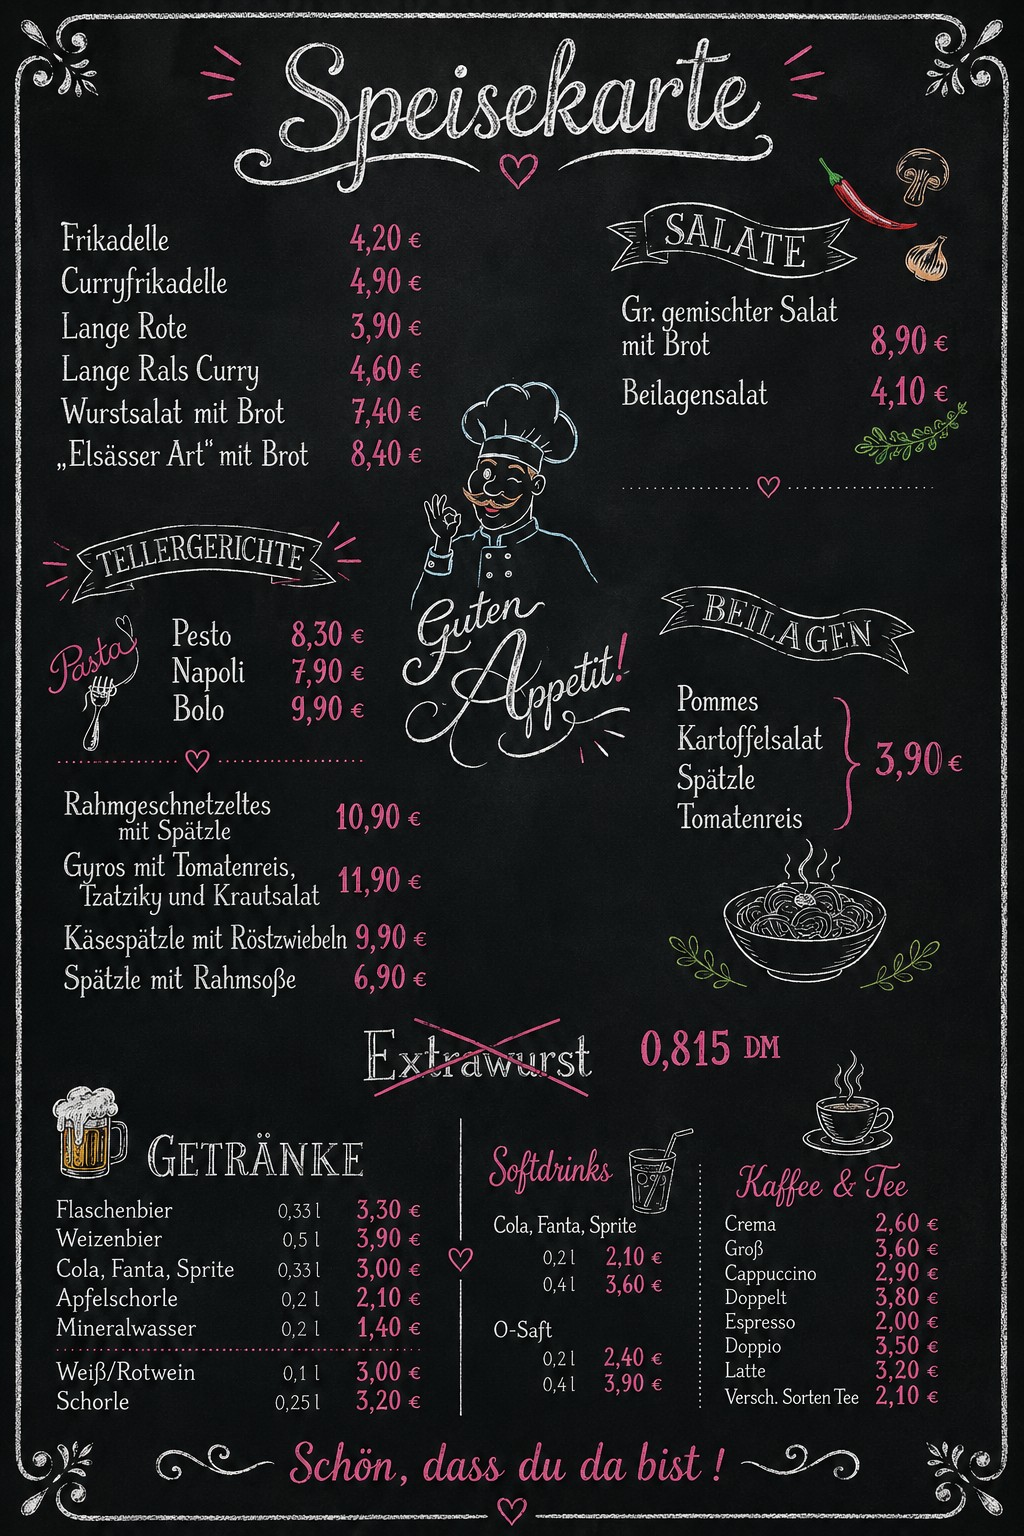 Speisekarte
Frikadelle 4,20 €
Curryfrikadelle 4,90 €
Lange Rote 3,90 €
Lange Rals Curry 4,60 €
Wurstsalat mit Brot 7,40 €
„Elsässer Art“ mit Brot 8,40 €
SALATE
Gr. gemischter Salat
mit Brot 8,90 €
Beilagensalat 4,10 €
TELLERGERICHTE
Pasta
Pesto 8,30 €
Napoli 7,90 €
Bolo 9,90 €
Guten
Appetit!
BEILAGEN
Pommes
Kartoffelsalat
Spätzle
Tomatenreis
3,90 €
Rahmgeschnetzeltes
mit Spätzle 10,90 €
Gyros mit Tomatenreis,
Tzatziky und Krautsalat 11,90 €
Käsespätzle mit Röstzwiebeln 9,90 €
Spätzle mit Rahmsoße 6,90 €
Extrawurst 0,815 DM
GETRÄNKE
Flaschenbier 0,33 l 3,30 €
Weizenbier 0,5 l 3,90 €
Cola, Fanta, Sprite 0,33 l 3,00 €
Apfelschorle 0,2 l 2,10 €
Mineralwasser 0,2 l 1,40 €
Weiß/Rotwein 0,1 l 3,00 €
Schorle 0,25 l 3,20 €
Softdrinks
Cola, Fanta, Sprite
0,2 l 2,10 €
0,4 l 3,60 €
O-Saft
0,2 l 2,40 €
0,4 l 3,90 €
Kaffee & Tee
Crema 2,60 €
Groß 3,60 €
Cappuccino 2,90 €
Doppelt 3,80 €
Espresso 2,00 €
Doppio 3,50 €
Latte 3,20 €
Versch. Sorten Tee 2,10 €
Schön, dass du da bist !